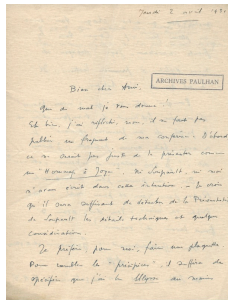 Jeudi 2 avril 1931
Bien cher Ami,
ARCHIVES PAULHAN
Que de mal je vous donne !
Eh bien, j'ai réfléchi, non, il ne faut pas
publier un fragment de ma conférence. D'abord
ce ne serait pas juste de la présenter comme
un "Hommage à Joyce". Ni Soupault, ni moi
n'avons écrit dans cette intention. Je crois
qu'il sera suffisant de détacher de la Présentation
de Soupault les détails techniques et quelques
considérations.
Je préfère, pour moi, faire une plaquette
Pour combler le "précipice", il suffira de
spécifier que j'ai lu Ulysse au moins